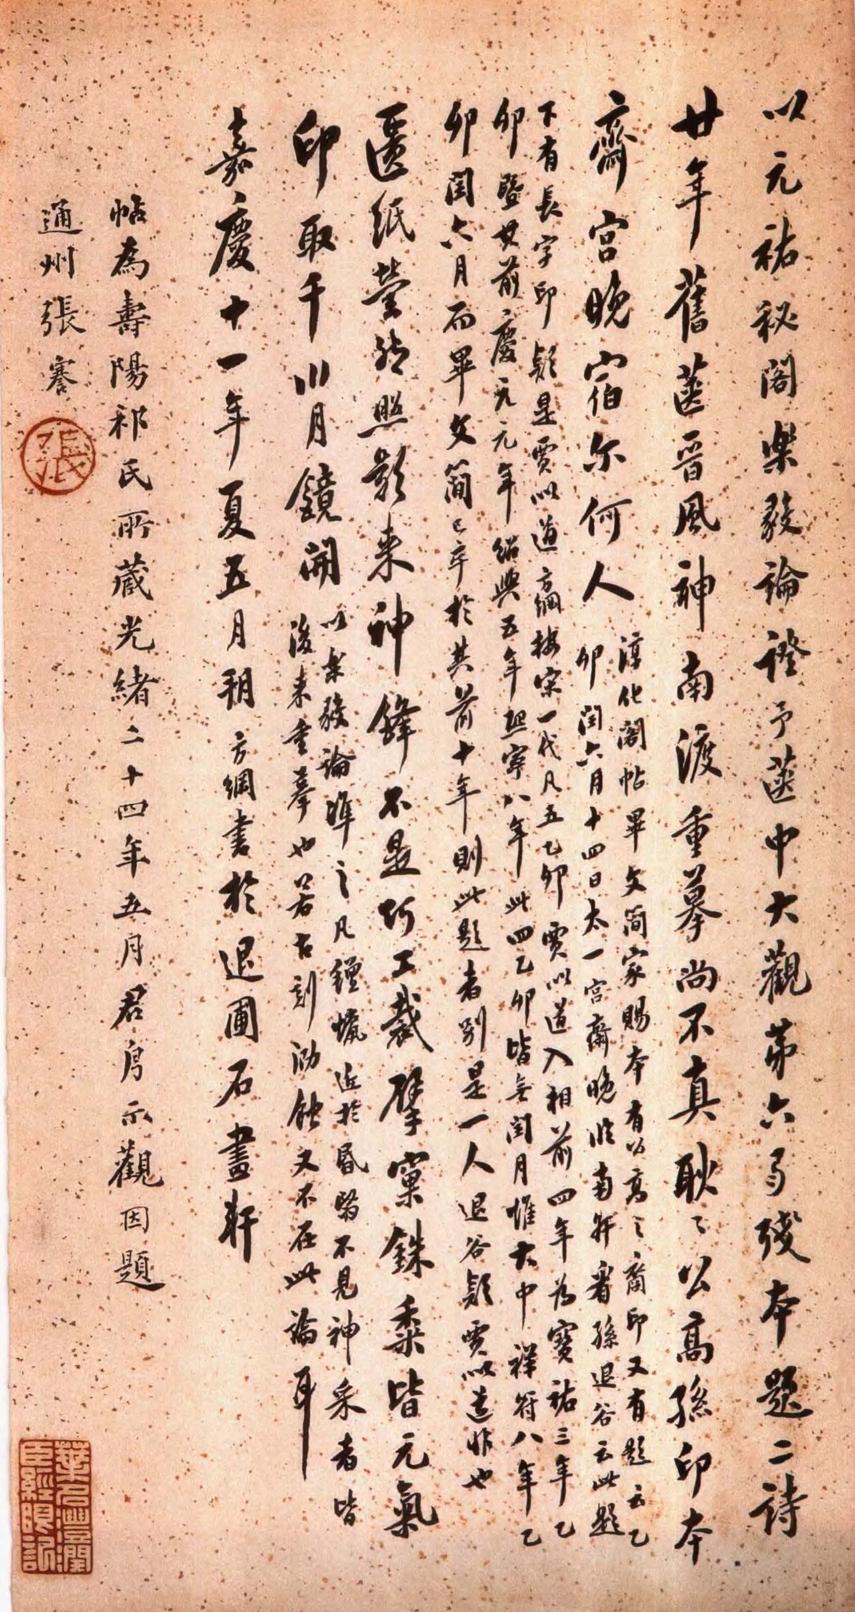 以元祐秘閣樂毅論證予篋中大觀第六弓殘本題二詩
廿年舊篋晉風神南渡重摹尚不真耿〻公高孫印本
齋宮晚宿尔何人
淳化閣帖畢文簡家賜本有公高之裔印又有題云乙
卯閏六月十四日太一宮齋晚臨南軒看孫退谷云此題
下有長字印疑是賈似道方綱按宋一代凡五乙卯賈似道入相前四年為寶祐三年乙
卯暨其前慶元元年紹興五年熙寧八年此四乙卯皆無閏月惟大中祥符八年乙
卯閏六月而畢文簡已卒於其前十年則此題者別是一人退谷疑賈似道非也
紙瑩然照影來神鋒不是巧工裁擘窠銖黍皆元氣
印取千川月鏡開
以樂毅論準之凡近於昏翳不見神采者皆
後來重摹也若古刻泐蝕又不在此論耳
嘉慶十一年夏五月朔方綱書於退圃石畫軒
帖為壽陽祁氏所藏光緒二十四年五月君示觀因題
通州張謇
張